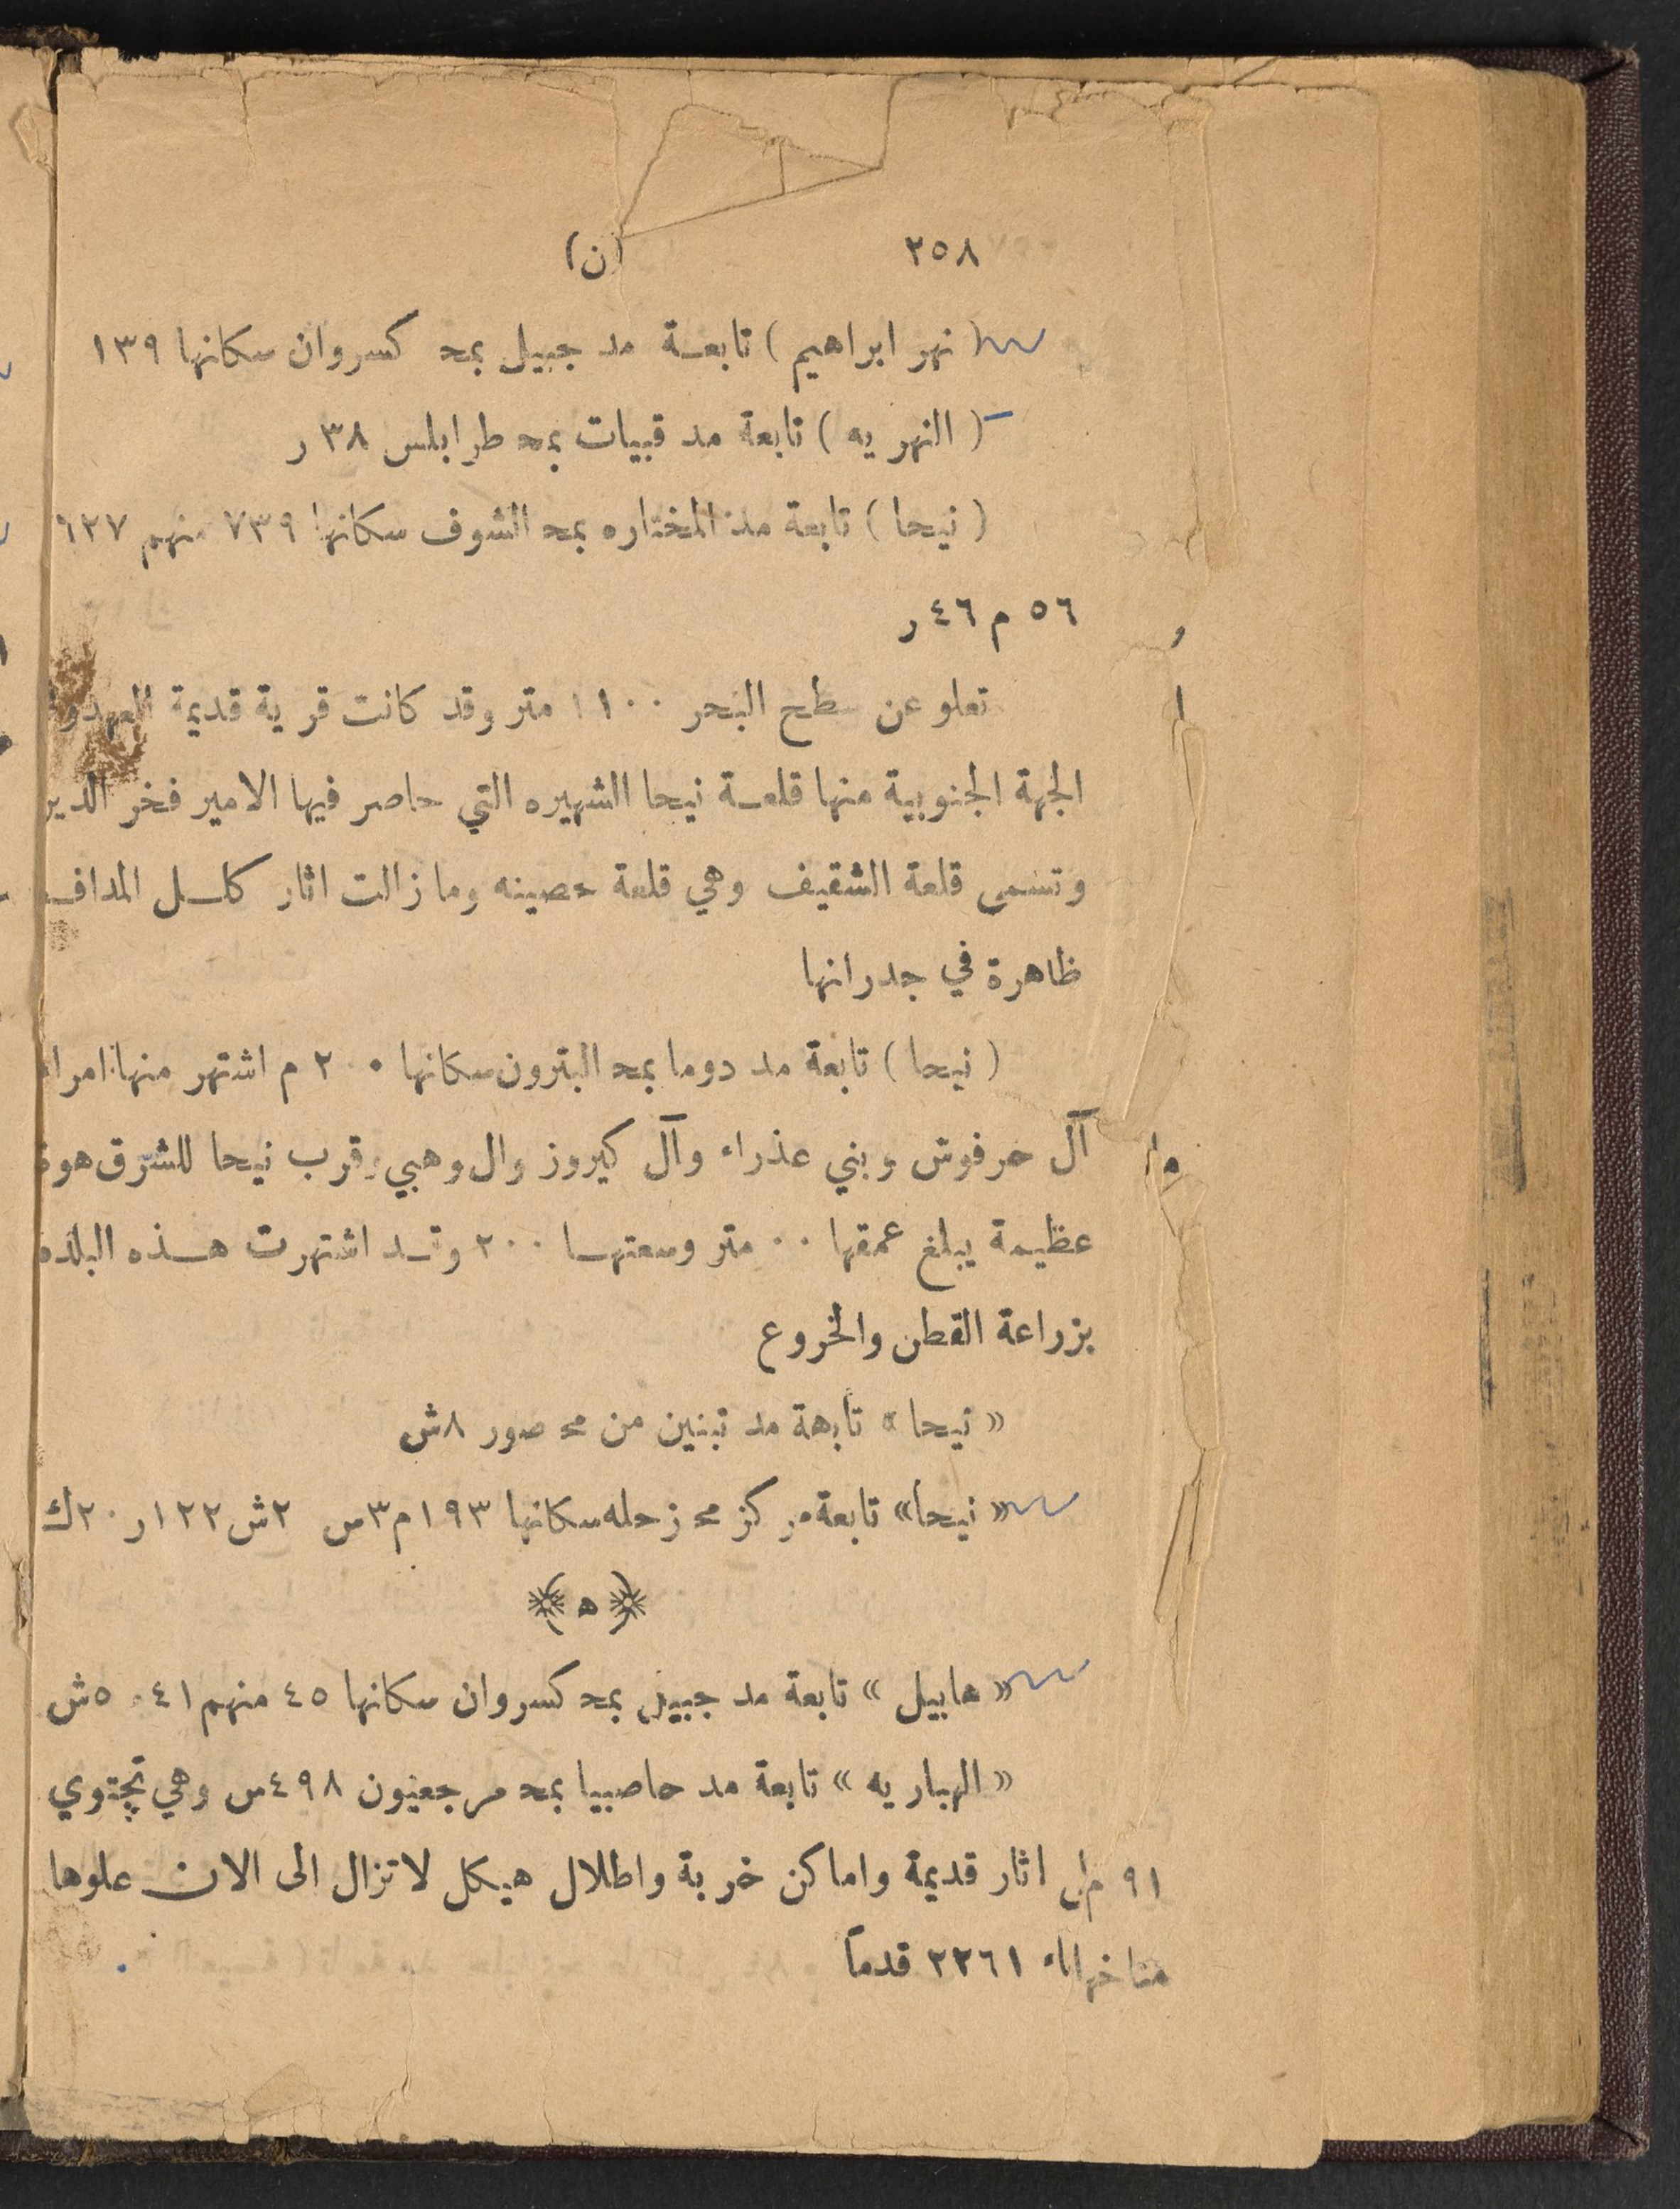 ٢٥٨ (ن)
( نهر ابراهيم ) تابعة مد جبيل بمح كسروان سكانها ١٣٩
( النهريه ) تابعة مد قبيات بمح طرابلس ٣٨ ر
( نيحا ) تابعة مد المختاره بمح الشوف سكانها ٧٣٩ منهم ٦٢٧
٥٦ م ٤٦ ر
تعلو عن سطح البحر ١١٠٠ متر وقد كانت قرية قديمة العهد
الجهة الجنوبية منها قلعة نيحا الشهيره التي حاصر فيها الامير فخر الدين
وتسمى قلعة الشقيف وهي قلعة حصينه وما زالت اثار كلل المداف
ظاهرة في جدرانها
( نيحا ) تابعة مد دوما بمح البترون سكانها ٢٠٠ م اشتهر منها امراء
آل حرفوش وبني عذراء وآل كيروز وال وهبي وقرب نيحا للشرق هوة
عظيمة يبلغ عمقها ٠٠ متر وسعتها ٢٠٠ وقد اشتهرت هذه البلده
بزراعة القطن والخروع
« نيحا » تابعة مد تبنين من مح صور ٨ش
« نيحا» تابعة مركز مح زحله سكانها ١٩٣م ٣س ٢ش ١٢٢ر ٢٠ك
﴿ ه ﴾
« هابيل » تابعة مد جبيل بمح كسروان سكانها ٤٥ منهم ٤١ ٥ش
« الهباريه » تابعة مد حاصبيا بمح مرجعيون ٤٩٨س وهي تحتوي
٩١ م اثار قديمة واماكن خربة واطلال هيكل لا تزال الى الان علوها
٢٢٦١ قدماً